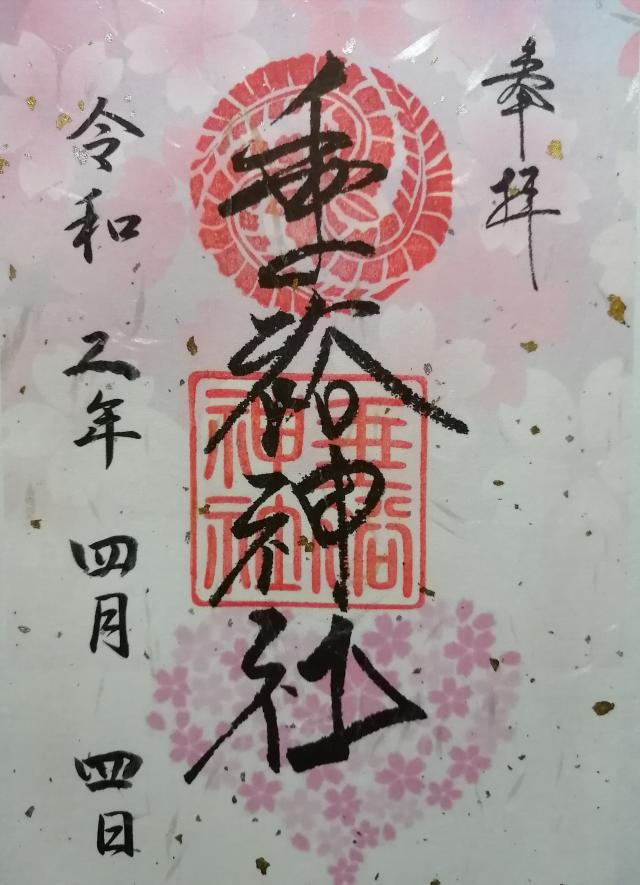 奉拝
垂裕神社
垂裕
神社
令和三年四月四日